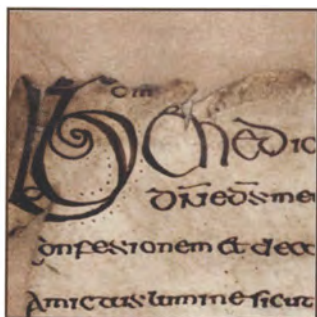 om
Benedic
dn̄e ds̄ me
confessionem et deco
Amictus lumine sicut